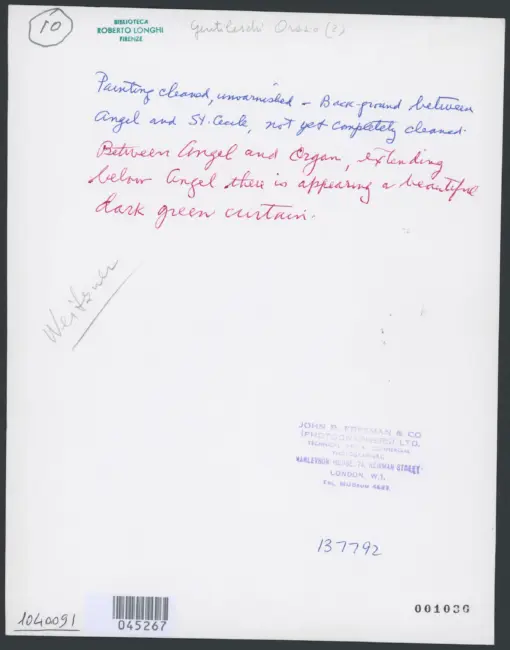 10
BIBLIOTECA
ROBERTO LONGHI
FIRENZE
Gentileschi Orazio (?)
Painting cleaned, unvarnished - Back-ground between
Angel and St. Cecile, not yet completely cleaned.
Between Angel and Organ, extending
below Angel there is appearing a beautiful
dark green curtain.
Weitzner
JOHN R. FREEMAN & CO
(PHOTOGRAPHERS) LTD.
LONDON, W.1.
TEL. MUSEUM
137792
001036
1040091
045267